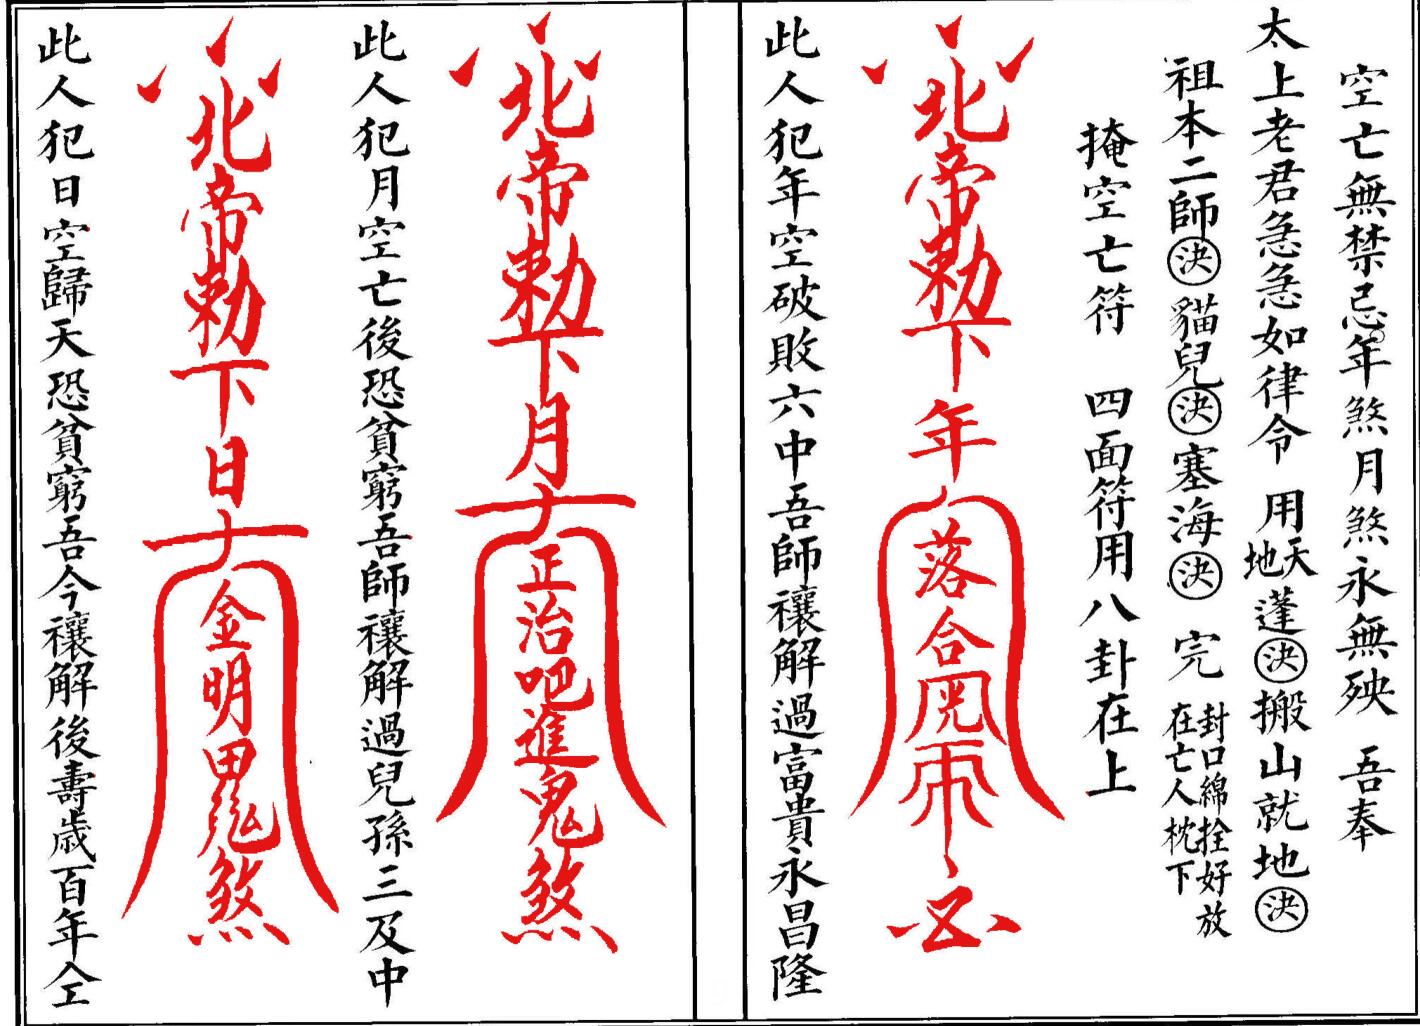 空亡無禁忌年煞月煞永無殃 吾奉
太上老君急急如律令 用天地蓬決搬山就地決
祖本二師決貓兒決塞海決 完 封口綿拴好放在亡人枕下
掩空亡符 四面符用八卦在上
北帝勅下年落合
此人犯年空破敗六中吾師禳解過富貴永昌隆
北帝勅下月正治吧進鬼煞
此人犯月空亡後恐貧窮吾師禳解過兒孫三及中
北帝勅下日金明
此人犯日空歸天恐貧窮吾今禳解後壽歲百年